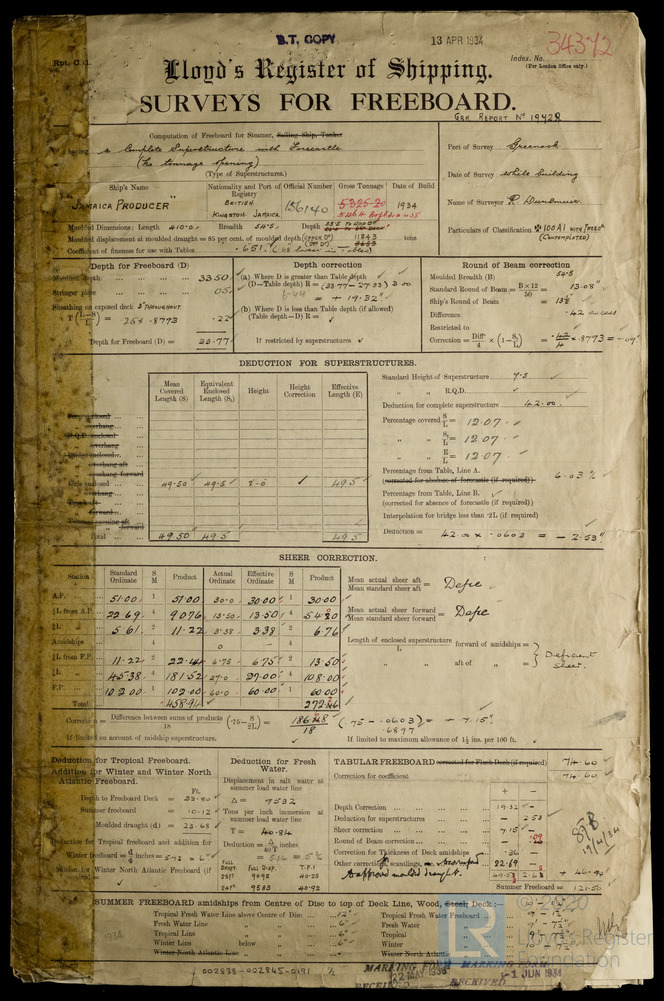 B.T. COPY
13 APR 1934
34372
Index. No.
(For London Office only.)
Lloyd's Register of Shipping.
SURVEYS FOR FREEBOARD.
GRK REPORT Nº 19428
Computation of Freeboard for Steamer, Sailing Ship, Tanker
a Complete Superstructure with Forecastle
(No tonnage opening)
(Type of Superstructures.)
Port of Survey Greenock
Date of Survey while building
Name of Surveyor
Particulars of Classification 100A1 WITH FREEBD
(Contemplated)
Ship's Name
Nationality and Port of Registry
Official Number
Gross Tonnage
Date of Build
"JAMAICA PRODUCER"
BRITISH
KINGSTON JAMAICA
156140
5325.20
1934
Moulded Dimensions: Length 410.0 Breadth 54.5 Depth
Moulded displacement at moulded draught = 85 per cent. of moulded depth 11843 tons
Coefficient of fineness for use with Tables .651
Depth for Freeboard (D)
Moulded depth 33.50
Stringer plate .05
Sheathing on exposed deck 3" THROUGHOUT
T (L-S/L) = .25 x .8773 .22
Depth for Freeboard (D) = 33.77
Depth correction
(a) Where D is greater than Table depth
(D-Table depth) R = (33.77-27.33) 3.00
= + 19.32"
(b) Where D is less than Table depth (if allowed)
(Table depth-D) R =
If restricted by superstructures
Round of Beam correction
Moulded Breadth (B) 54.5
Standard Round of Beam = B×12/50 = 13.08"
Ship's Round of Beam = 13½"
Difference .42 excess
Restricted to
Correction = Diff/4 × (1-S₁/L) = .42/4 x .8773 = -.09"
DEDUCTION FOR SUPERSTRUCTURES.
Mean Covered Length (S)
Equivalent Enclosed Length (S₁)
Height
Height Correction
Effective Length (E)
Poop enclosed
overhang
R.Q.D. enclosed
overhang
Bridge enclosed
overhang aft
overhang forward
F'cle enclosed 49.50 49.5 8-0 49.5
overhang
Trunk aft
forward
Tonnage opening aft
forward
Total 49.50 49.5 49.5
Standard Height of Superstructure 7.5
" " R.Q.D.
Deduction for complete superstructure 42.00
Percentage covered S/L = 12.07
" " S₁/L = 12.07
" " E/L = 12.07
Percentage from Table, Line A.
(corrected for absence of forecastle (if required)) 6.03 %
Percentage from Table, Line B.
(corrected for absence of forecastle (if required))
Interpolation for bridge less than ·2L (if required)
Deduction = 42.00 x .0603 = - 2.53"
SHEER CORRECTION.
Station
Standard Ordinate
S M
Product
Actual Ordinate
Effective Ordinate
S M
Product
A.P. 51.00 1 51.00 30.0 30.00 1 30.00
⅙L from A.P. 22.69 4 90.76 13.50 13.50 4 54.00
⅓L " 5.61 2 11.22 3.38 3.38 2 6.76
Amidships 4 0 - 4
⅓L from F.P. 11.22 2 22.44 6.75 6.75 2 13.50
⅙L " 45.38 4 181.52 27.0 27.00 4 108.00
F.P. 102.00 1 102.00 60.0 60.00 1 60.00
Total 458.94 272.26
Mean actual sheer aft / Mean standard sheer aft = Defic
Mean actual sheer forward / Mean standard sheer forward = Defic
Length of enclosed superstructure / L forward of amidships =
" " aft of " =
Deficient sheer.
Correction = Difference between sums of products / 18 (·75 - S/2L) = 186.68 / 18 (.75 - .0603) = + 7.15"
.6897
If limited on account of midship superstructure.
If limited to maximum allowance of 1½ ins. per 100 ft.
Deduction for Tropical Freeboard.
Addition for Winter and Winter North Atlantic Freeboard.
Ft.
Depth to Freeboard Deck = 33.80
Summer freeboard = 10.12
Moulded draught (d) = 23.68
Deduction for Tropical freeboard and addition for
Winter freeboard = d/4 inches = 5.92 = 6"
Addition for Winter North Atlantic Freeboard (if required)
Deduction for Fresh Water.
Displacement in salt water at summer load water line
Δ = 9532
Tons per inch immersion at summer load water line
T = 40.84
Deduction = Δ/40T inches
= 5.84
FULL DRAFT. FULL DISP. T.P.I
9098 40.25
9583 40.92
TABULAR FREEBOARD corrected for Flush Deck (if required) 74.60
Correction for coefficient 74.60
+ -
Depth Correction 19.32 -
Deduction for superstructures - 2.53
Sheer correction 7.15 -
Round of Beam correction - .09
Correction for Thickness of Deck amidships .36 -
Other corrections, scantlings, 22.69 -
49.52 2.62 + 46.90
Summer Freeboard = 121.50
SUMMER FREEBOARD amidships from Centre of Disc to top of Deck Line, Wood, Steel, Deck:-
Tropical Fresh Water Line above Centre of Disc 12"
Fresh Water Line " " 6"
Tropical Line " " 6"
Winter Line below " 6"
Winter North Atlantic Line " "
Tropical Fresh Water Freeboard
Fresh Water "
Tropical "
Winter "
Winter North Atlantic "
002838-002845-0191 1/2
MARKING FORM
22 MAY 1935
RECEIVED
MARKING FORM
-1 JUN 1934
RECEIVED
© 2020
LR
Lloyd's Register
Foundation